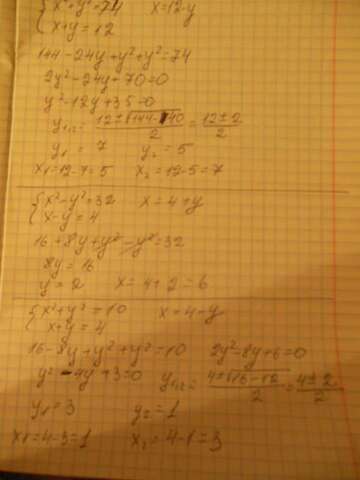 {x²+y²=74   x=12-y
{x+y=12
144-24y+y²+y²=74
2y²-24y+70=0
y²-12y+35=0
y₁,₂= (12±√144-140)/2 = (12±2)/2
y₁ = 7   y₂ = 5
x₁=12-7=5   x₂=12-5=7
{x²-y²=32   x=4+y
{x-y=4
16+8y+y²-y²=32
8y=16
y=2   x=4+2=6
{x²+y²=10   x=4-y
{x+y=4
16-8y+y²+y²=10   2y²-8y+6=0
y²-4y+3=0   y₁,₂= (4±√16-12)/2 = (4±2)/2
y₁=3   y₂=1
x₁=4-3=1   x₂=4-1=3